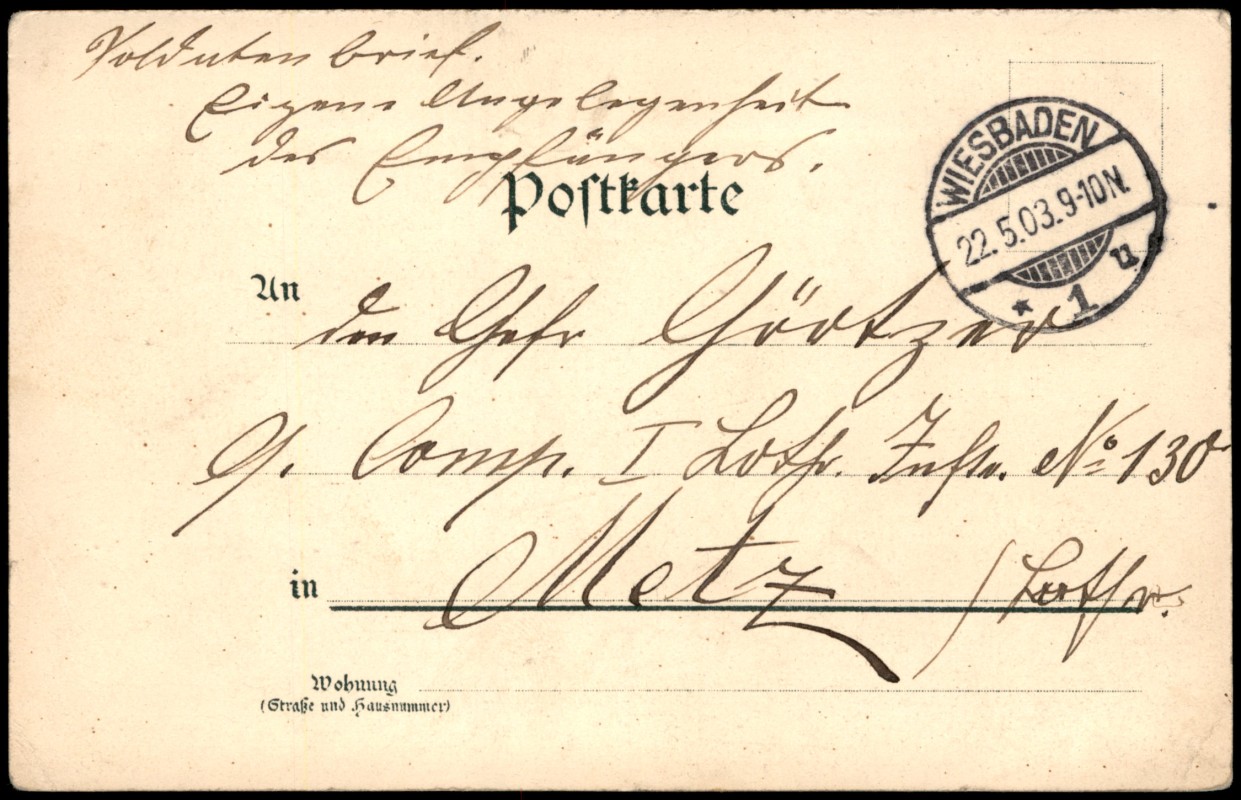 Soldatenbrief.
Eigene Angelegenheit
des Empfängers.
Postkarte
WIESBADEN
22.5.03.9-10N.
* 1 u
An
den Gefr Görtzer
9. Comp. I Lothr. Inftr. No 130
in Metz / Lothr.
Wohnung
(Straße und Hausnummer)